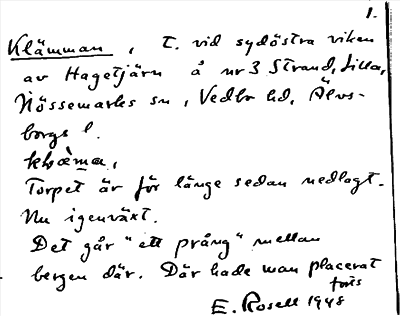 1.
Klämman, t. vid sydöstra viken
av Hagetjärn å nr 3 Strand, Lilla,
Nössemarks sn, Vedbo hd, Älvs-
borgs l.
Torpet är för länge sedan nedlagt.
Nu igenväxt.
Det går "ett prång" mellan
bergen där. Där hade man placerat
forts
E. Rosell 1948